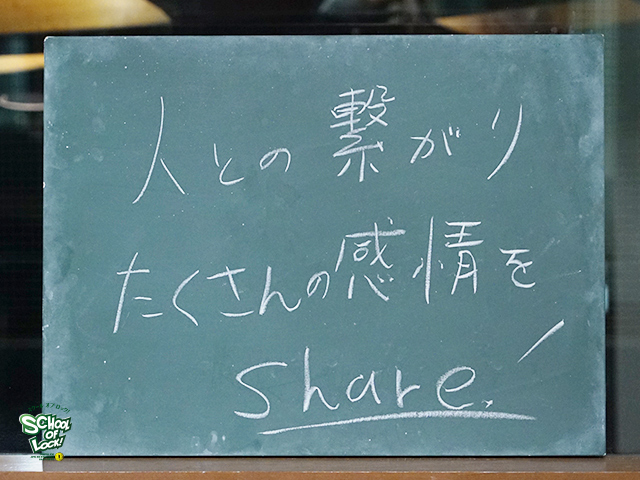 人との繋がり
たくさんの感情を
share!
SCHOOL
OF
LOCK!